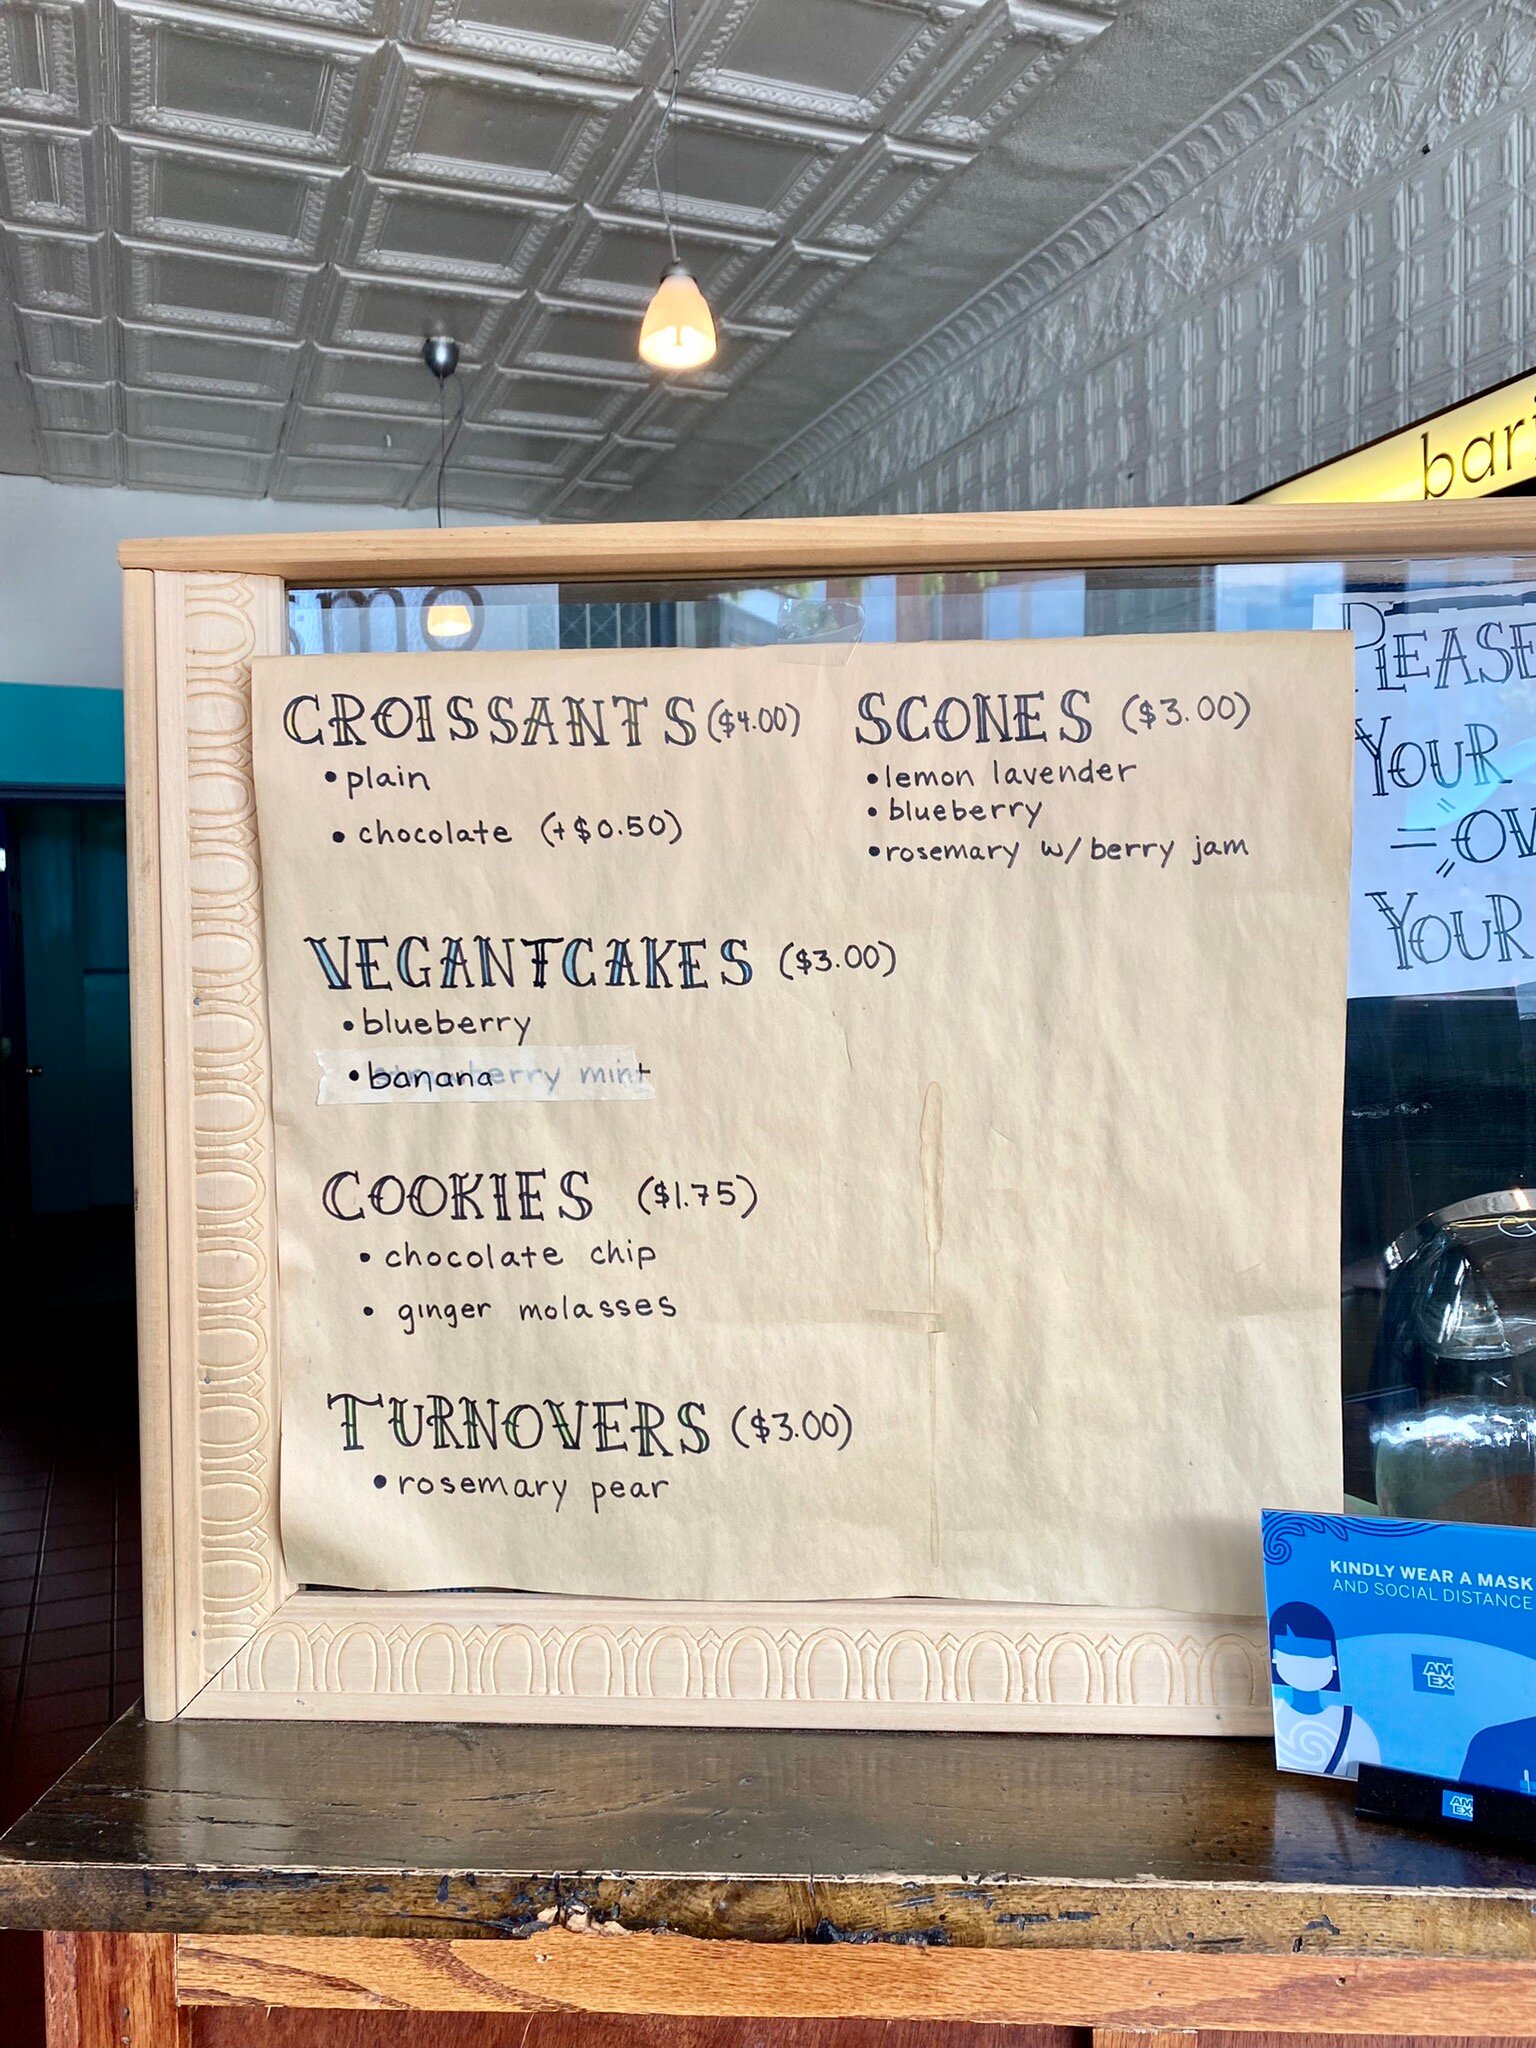 bari
CROISSANTS ($4.00)
• plain
• chocolate (+$0.50)
VEGANTCAKES ($3.00)
• blueberry
• banana
mint
COOKIES ($1.75)
• chocolate chip
• ginger molasses
TURNOVERS ($3.00)
• rosemary pear
SCONES ($3.00)
• lemon lavender
• blueberry
• rosemary w/ berry jam
PLEASE
YOUR
= OV
YOUR
KINDLY WEAR A MASK
AND SOCIAL DISTANCE
AM
EX
AM
EX